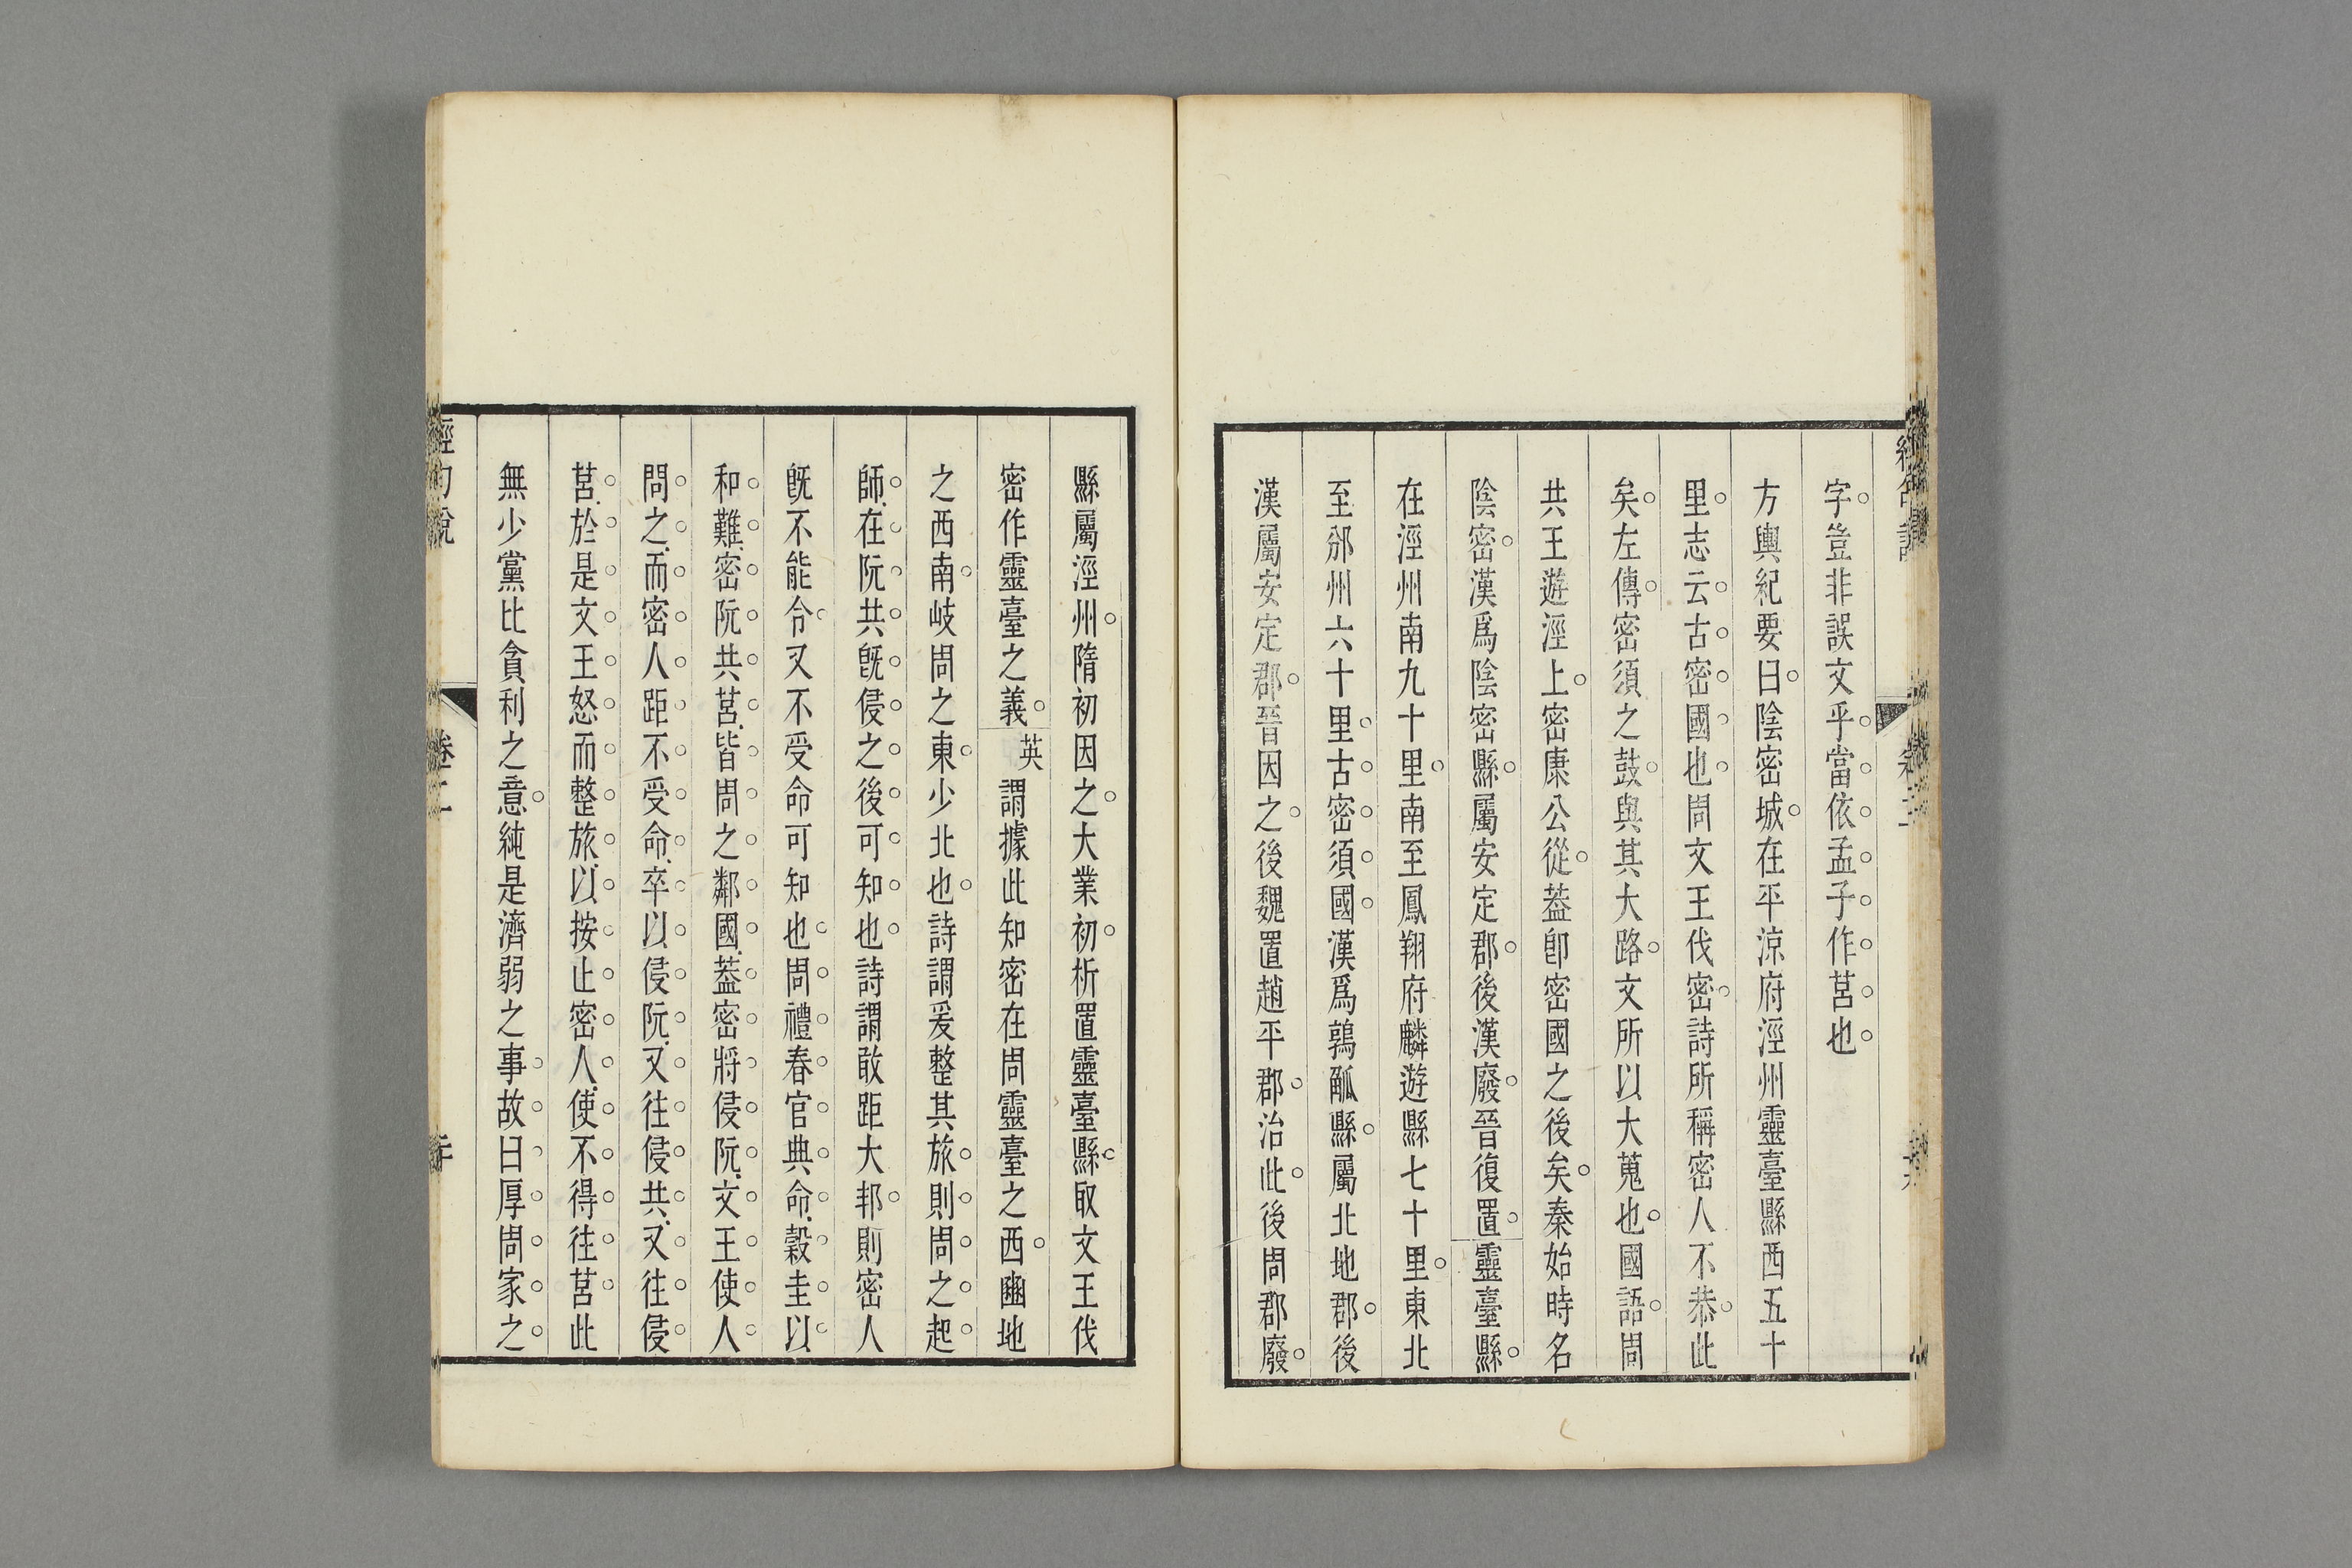 字豈非誤文乎當依孟子作莒也
方輿紀要曰陰密城在平涼府涇州靈臺縣西五十
里志云古密國也周文王伐密詩所稱密人不恭此
矣左傳密須之鼓與其大路文所以大蒐也國語周
共王遊涇上密康公從蓋卽密國之後矣秦始時名
陰密漢爲陰密縣屬安定郡後漢廢晉復置靈臺縣
在涇州南九十里南至鳳翔府麟遊縣七十里東北
至邠州六十里古密須國漢爲鶉觚縣屬北地郡後
漢屬安定郡晉因之後魏置趙平郡治此後周郡廢
縣屬涇州隋初因之大業初析置靈臺縣取文王伐
密作靈臺之義英謂據此知密在周靈臺之西豳地
之西南岐周之東少北也詩謂爰整其旅則周之起
師在阮共旣侵之後可知也詩謂敢距大邦則密人
旣不能令又不受命可知也周禮春官典命穀圭以
和難密阮共莒皆周之鄰國蓋密將侵阮文王使人
問之而密人距不受命卒以侵阮又往侵共又往侵
莒於是文王怒而整旅以按止密人使不得往莒此
無少黨比貪利之意純是濟弱之事故曰厚周家之
經句說
卷二